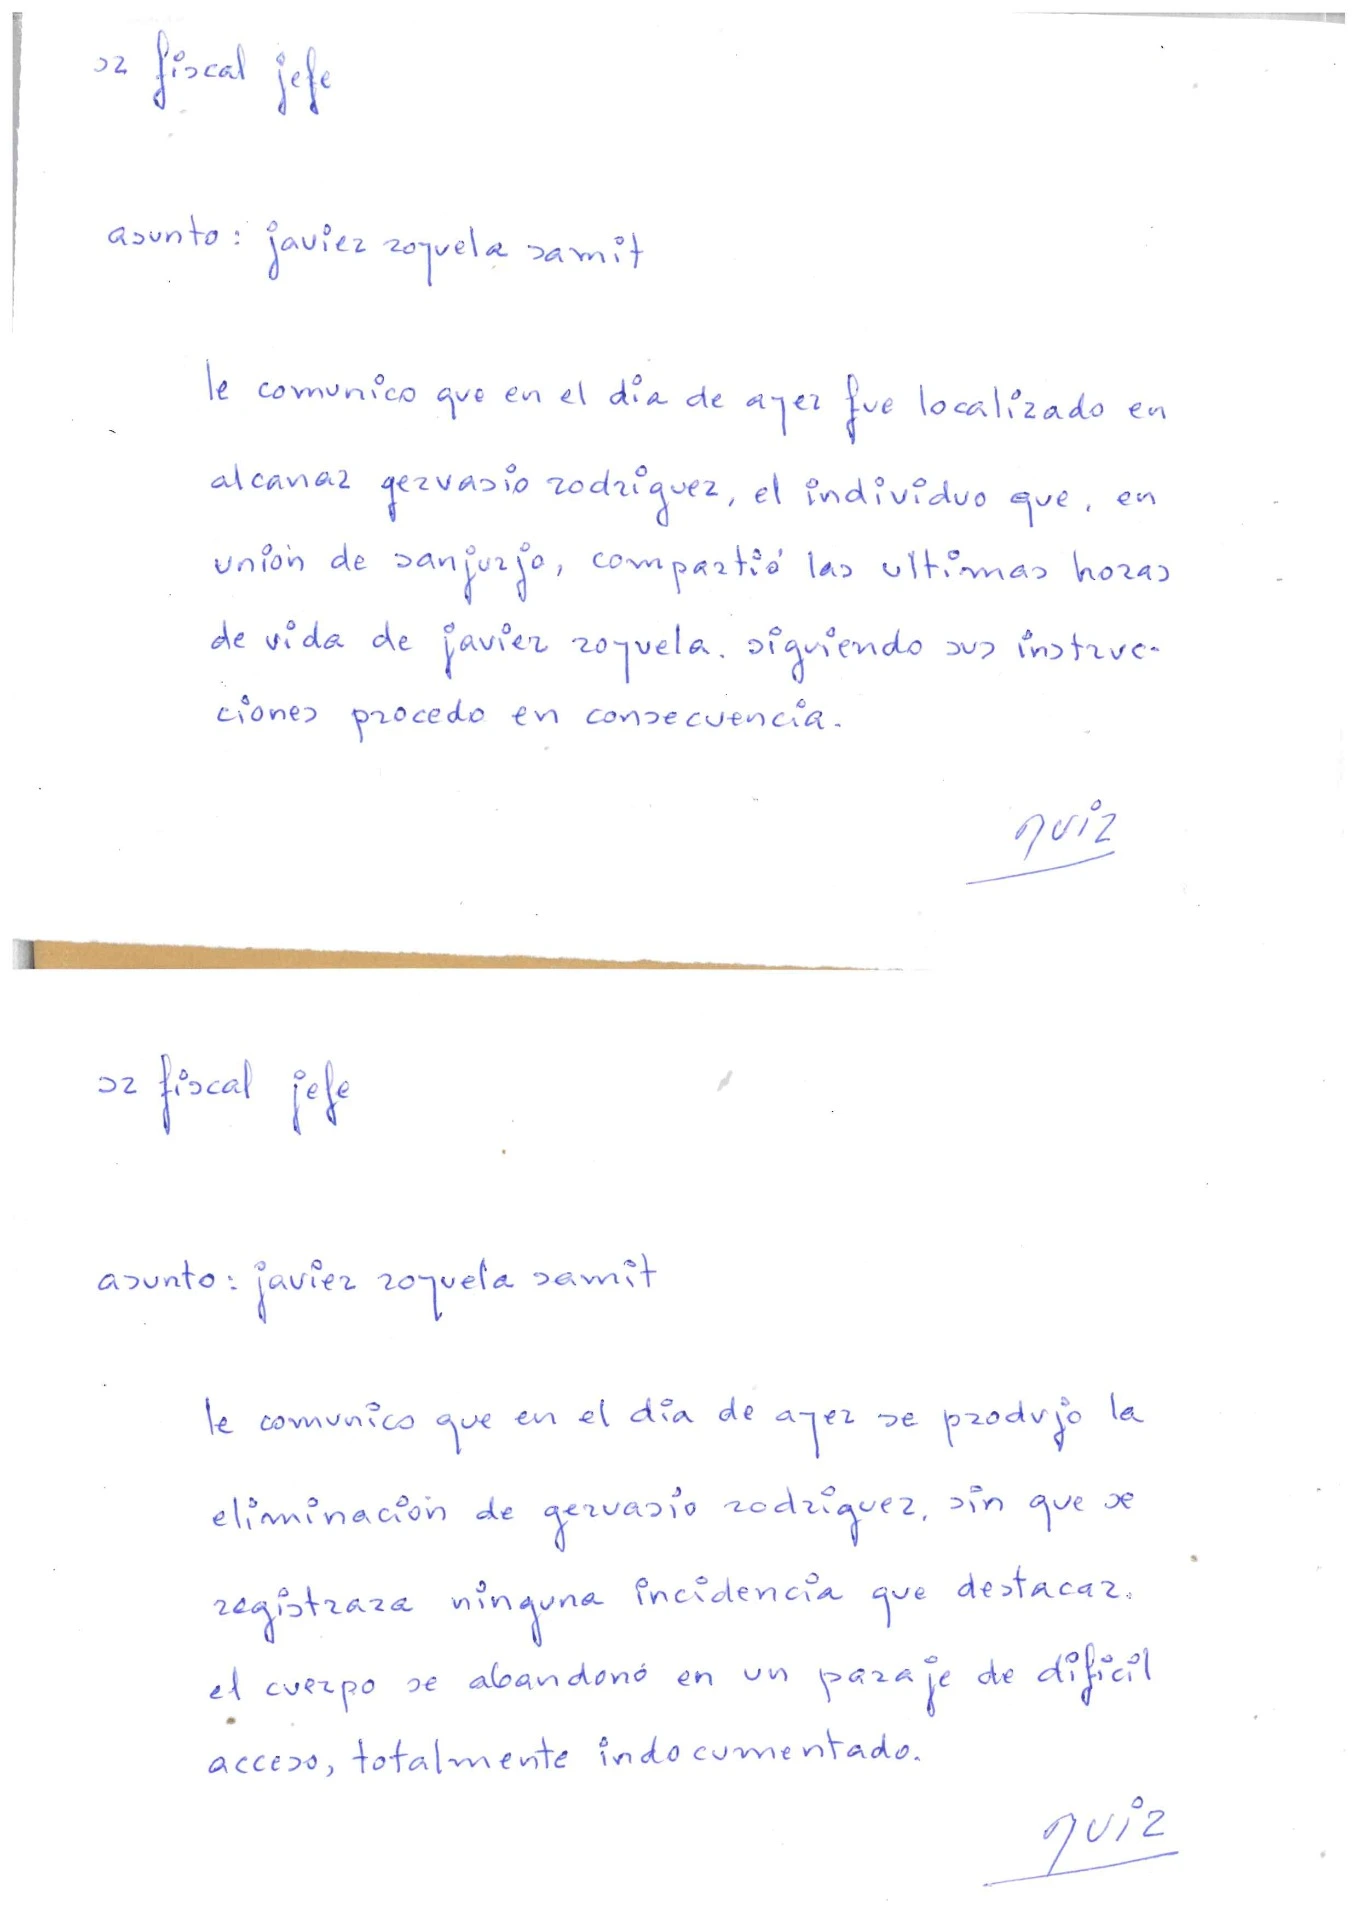 sr fiscal jefe
asunto: javier roquela samit
le comunico que en el día de ayer fue localizado en
alcanar gervasio rodríguez, el individuo que, en
unión de sanjurjo, compartió las ultimas horas
de vida de javier roquela. siguiendo sus instruc-
ciones procedo en consecuencia.
ruiz
sr fiscal jefe
asunto: javier roquela samit
le comunico que en el día de ayer se produjo la
eliminación de gervasio rodríguez, sin que se
registrara ninguna incidencia que destacar.
el cuerpo se abandonó en un paraje de dificil
acceso, totalmente indocumentado.
ruiz